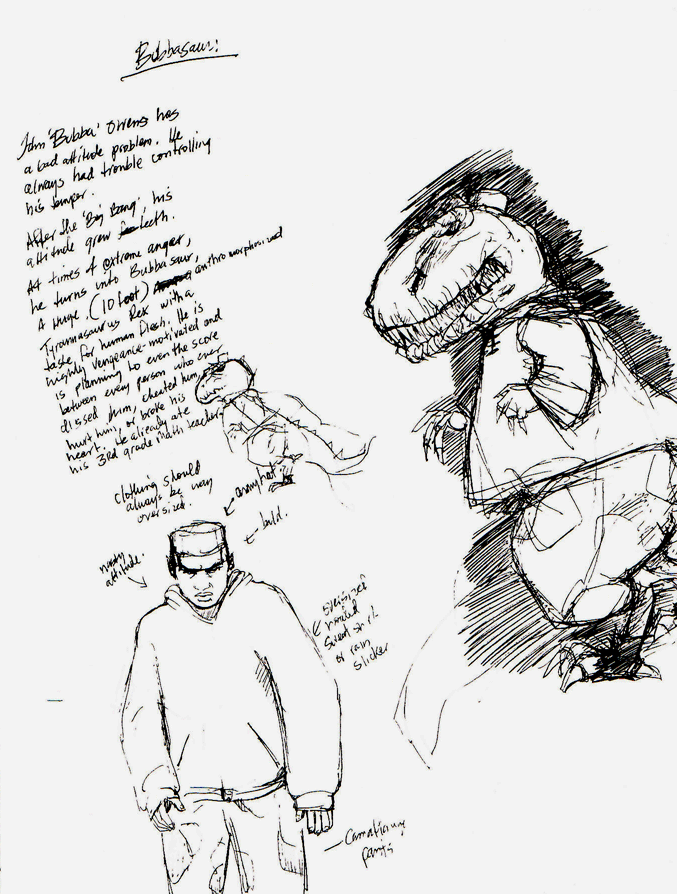 Bubbasaur:
John 'Bubba' Owens has
a bad attitude problem. He
always had trouble controlling
his temper.
After the 'Big Bang', his
attitude grew teeth.
At times of extreme anger,
he turns into Bubbasaur,
A huge, (10 foot) anthromorphisized
Tyrannasaurus Rex with a
taste for human flesh. He is
highly vengeance-motivated and
is planning to even the score
between every person who ever
dissed him, cheated him,
hurt him, or broke his
heart. He already ate
his 3rd grade math teacher.
clothing should
always be way
oversized.
army hat
bald.
nasty
attitude.
oversized
hooded
sweat shirt
or rain
slicker
pants